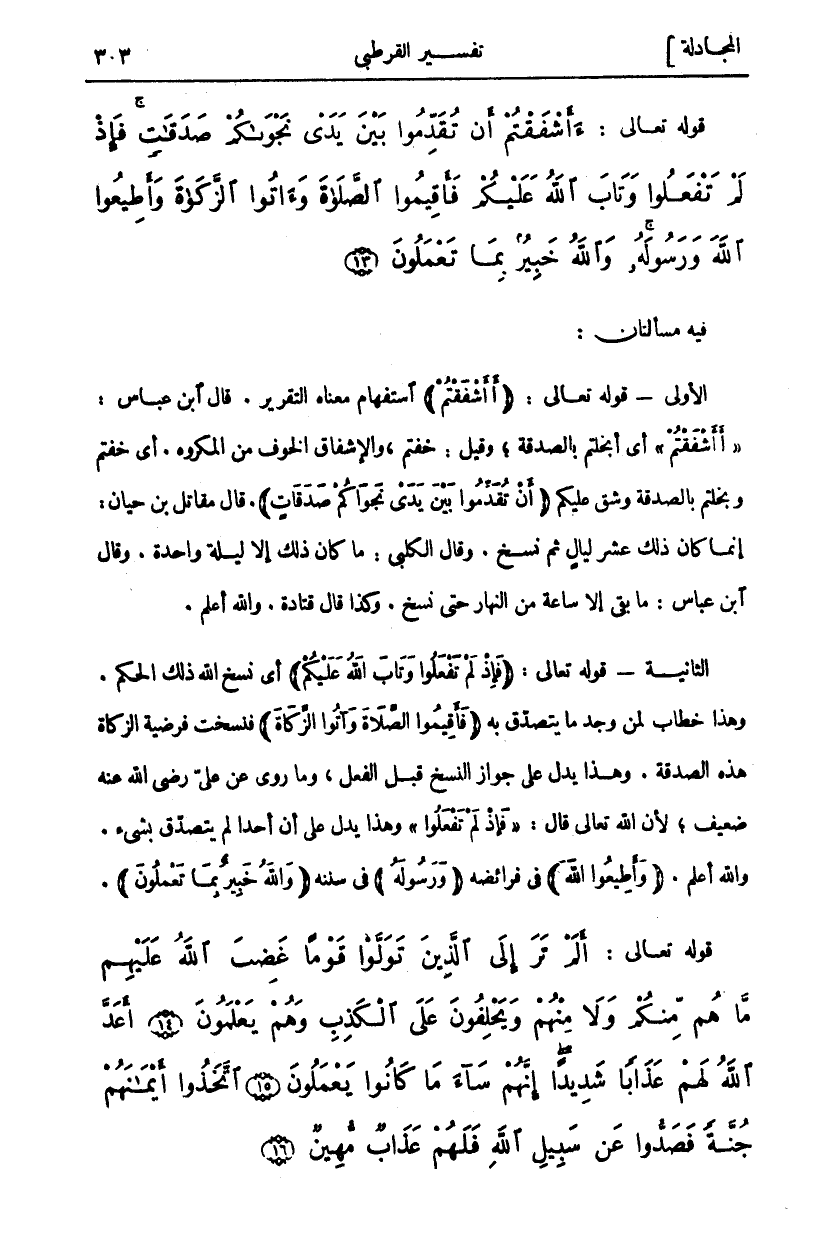 المجادلة ] تفسير القرطبى ٣٠٣
قوله تعالى : ءَأَشْفَقْتُمْ أَن تُقَدِّمُوا بَيْنَ يَدَىْ نَجْوَىٰكُمْ صَدَقَٰتٍ ۚ فَإِذْ
لَمْ تَفْعَلُوا وَتَابَ ٱللَّهُ عَلَيْكُمْ فَأَقِيمُوا ٱلصَّلَوٰةَ وَءَاتُوا ٱلزَّكَوٰةَ وَأَطِيعُوا
ٱللَّهَ وَرَسُولَهُۥ ۚ وَٱللَّهُ خَبِيرٌۢ بِمَا تَعْمَلُونَ ﴿١٣﴾
فيه مسألتان :
الأولى — قوله تعالى : ﴿ أَأَشْفَقْتُمْ ﴾ ٱستفهام معناه التقرير . قال ٱبن عباس :
« أَأَشْفَقْتُمْ » أى أبخلتم بالصدقة ؛ وقيل : خفتم ، والإشفاق الخوف من المكروه . أى خفتم
وبخلتم بالصدقة وشق عليكم ﴿ أَنْ تُقَدِّمُوا بَيْنَ يَدَىْ نَجْوَاكُمْ صَدَقَاتٍ ﴾ . قال مقاتل بن حيان :
إنما كان ذلك عشر ليالٍ ثم نسخ . وقال الكلبى : ما كان ذلك إلا ليلة واحدة . وقال
ٱبن عباس : ما بقى إلا ساعة من النهار حتى نسخ . وكذا قال قتادة . والله أعلم .
الثانية — قوله تعالى : ﴿ فَإِذْ لَمْ تَفْعَلُوا وَتَابَ اللهُ عَلَيْكُمْ ﴾ أى نسخ الله ذلك الحكم .
وهذا خطاب لمن وجد ما يتصدّق به ﴿ فَأَقِيمُوا الصَّلَاةَ وَآتُوا الزَّكَاةَ ﴾ فنسخت فرضية الزكاة
هذه الصدقة . وهذا يدل على جواز النسخ قبل الفعل ، وما روى عن علىّ رضى الله عنه
ضعيف ؛ لأن الله تعالى قال : « فَإِذْ لَمْ تَفْعَلُوا » وهذا يدل على أن أحدا لم يتصدّق بشىء .
والله أعلم . ﴿ وَأَطِيعُوا اللهَ ﴾ فى فرائضه ﴿ وَرَسُولَهُ ﴾ فى سننه ﴿ وَاللهُ خَبِيرٌ بِمَا تَعْمَلُونَ ﴾ .
قوله تعالى : أَلَمْ تَرَ إِلَى ٱلَّذِينَ تَوَلَّوْا قَوْمًا غَضِبَ ٱللَّهُ عَلَيْهِم
مَّا هُم مِّنكُمْ وَلَا مِنْهُمْ وَيَحْلِفُونَ عَلَى ٱلْكَذِبِ وَهُمْ يَعْلَمُونَ ﴿١٤﴾ أَعَدَّ
ٱللَّهُ لَهُمْ عَذَابًا شَدِيدًا ۖ إِنَّهُمْ سَآءَ مَا كَانُوا يَعْمَلُونَ ﴿١٥﴾ ٱتَّخَذُوا أَيْمَٰنَهُمْ
جُنَّةً فَصَدُّوا عَن سَبِيلِ ٱللَّهِ فَلَهُمْ عَذَابٌ مُّهِينٌ ﴿١٦﴾